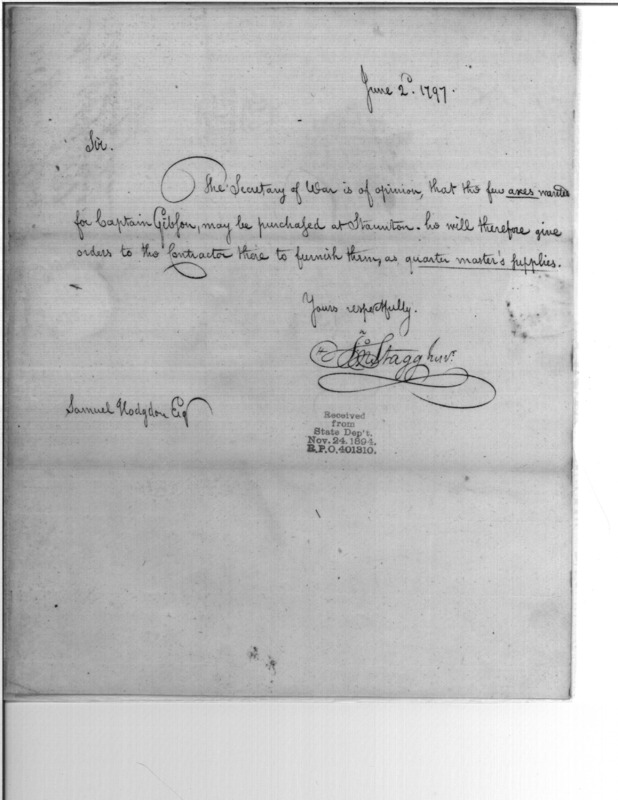 June 2d. 1797.
Sir.
The Secretary of War is of opinion, that the few axes wanted
for Captain Gibson, may be purchased at Staunton. he will therefore give
orders to the Contractor there to furnish them, as quarter master's supplies.
Yours respectfully.
Jno Stagg Junr.
Samuel Hodgdon Esq
Received
from
State Dep't.
Nov. 24. 1894.
R.P.O. 401310.